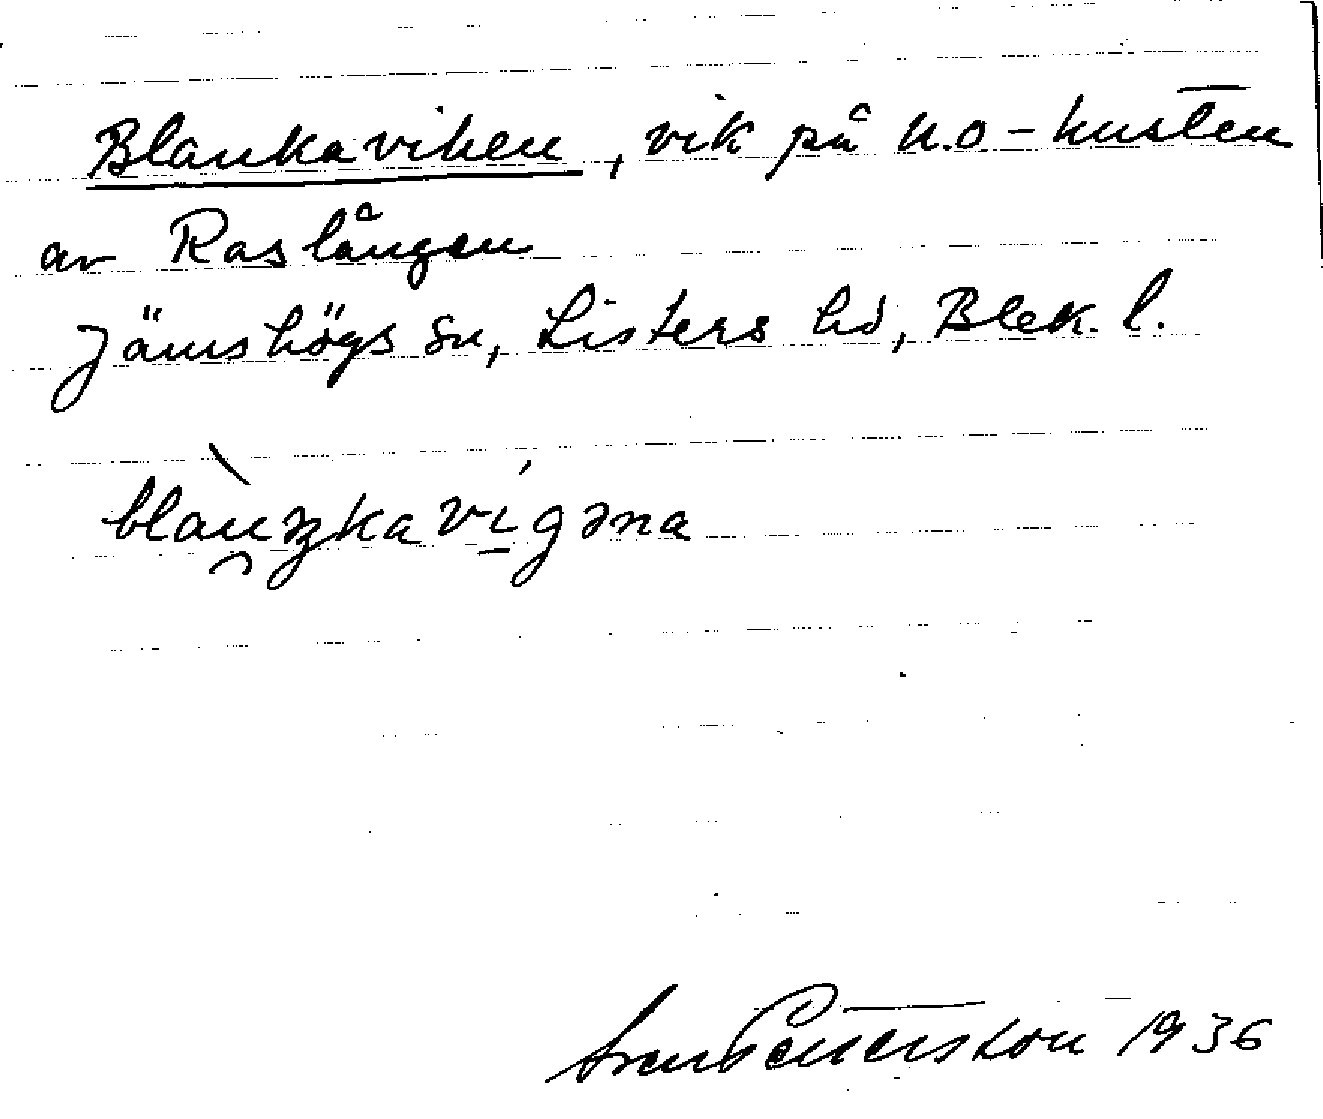 Blankaviken, vik på n.o-kusten
av Raslången
Jämshögs sn, Listers hd, Blek. l.
blàu̯ŋkaví̱gəna
Sven Pettersson 1936